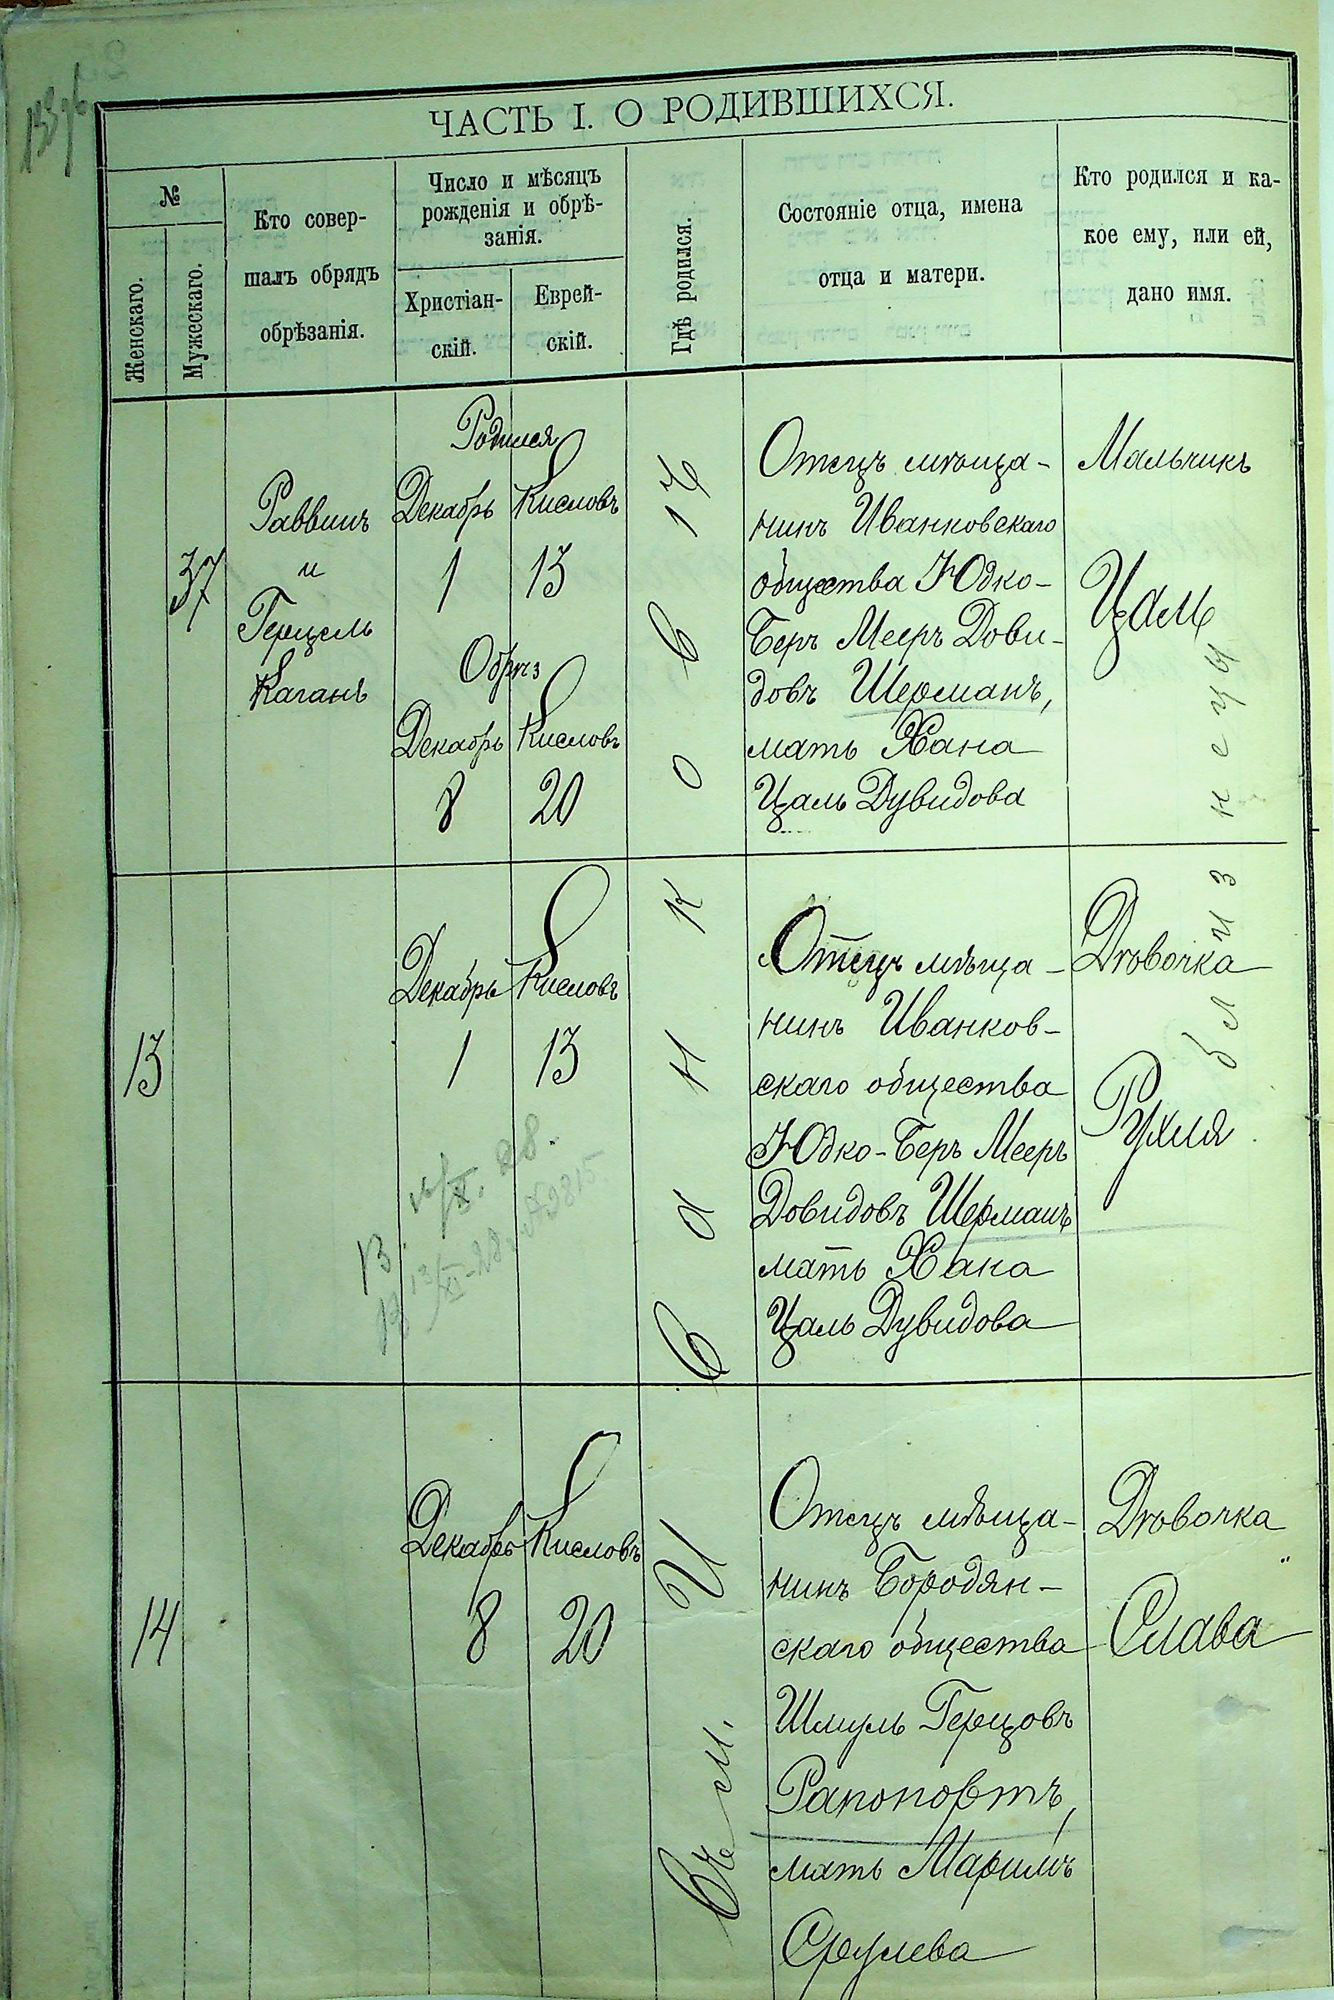 ЧАСТЬ I. О РОДИВШИХСЯ.
№
Женскаго.
Мужескаго.
Кто совер-
шалъ обрядъ
обрѣзанія.
Число и мѣсяцъ
рожденія и обрѣ-
занія.
Христіан-
скій.
Еврей-
скій.
Гдѣ родился.
Состояніе отца, имена
отца и матери.
Кто родился и ка-
кое ему, или ей,
дано имя.
37
Раввинъ
и
Герцель
Каганъ
Родился
Декабрь Кисловъ
1 13
Обрѣз
Декабрь Кисловъ
8 20
Въ м. Иванковѣ
Отецъ мѣща-
нинъ Иванковскаго
общества Юдко-
Беръ Мееръ Дови-
довъ Шерманъ,
мать Хана
Цаль Дувидова
Мальчикъ
близнецы
13
Декабрь Кисловъ
1 13
Отецъ мѣща-
нинъ Иванков-
скаго общества
Юдко-Беръ Мееръ
Довидовъ Шерманъ
мать Хана
Цаль Дувидова
Дѣвочка
Рухля
14
Декабрь Кисловъ
8 20
Отецъ мѣща-
нинъ Бородян-
скаго общества
Шмуль Герцовъ
Рапопортъ,
мать Маримъ
Срулева
Дѣвочка
Слава